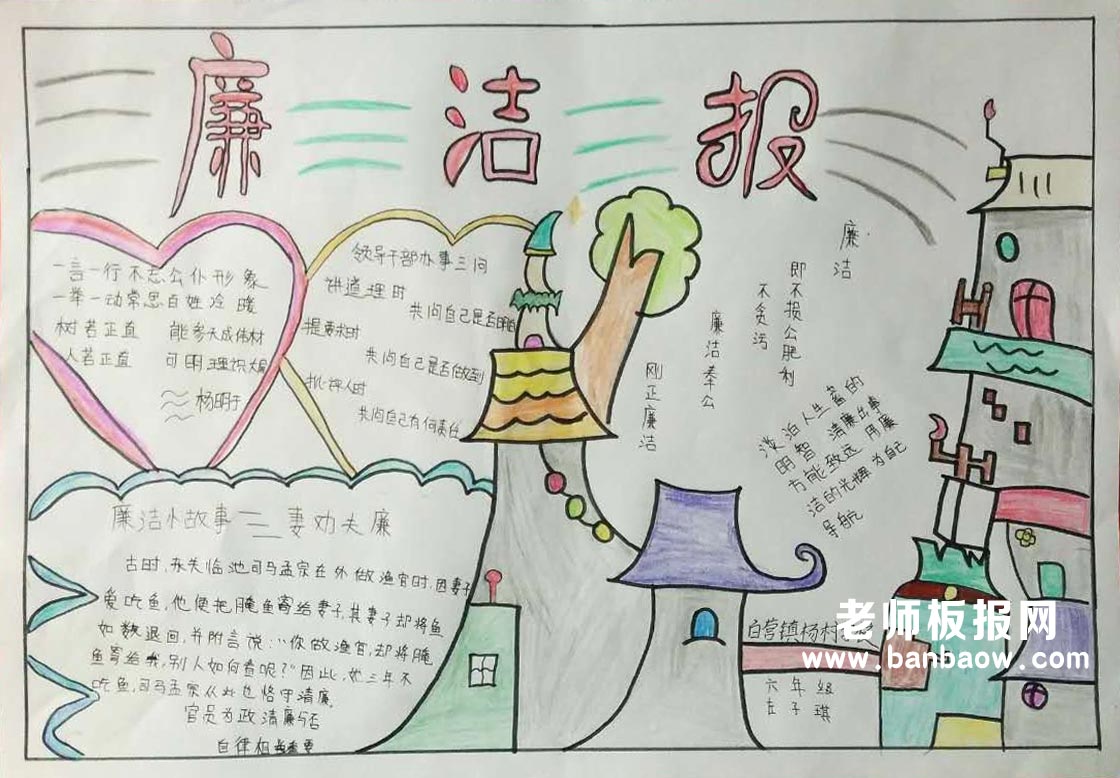 廉洁报
一言一行不忘公仆形象
一举一动常思百姓冷暖
树若正直 能参天成伟材
人若正直 可明理识大局
杨明于
领导干部办事三问
讲道理时
先问自己是否明白
提要求时
先问自己是否做到
批评人时
先问自己有何责任
廉洁
即不损公肥利
不贪污
廉洁奉公
刚正廉洁
淡泊人生蓄的
明智 清廉出事
方能致远 用廉
洁的光辉为自己
导航
廉洁小故事二三妻劝夫廉
古时,赤失临池司马孟宗在外做渔官时,因妻子
爱吃鱼,他便把腌鱼寄给妻子,其妻子却将鱼
如数退回,并附言说:“你做渔官,却将腌
鱼寄给我,别人如何看呢?”因此,她三年不
吃鱼,司马孟宗从此也恪守清廉,
官员为政清廉与否
自律相当重要
白营镇杨村
六年组
左子琪
老师板报网
www.banbaow.com